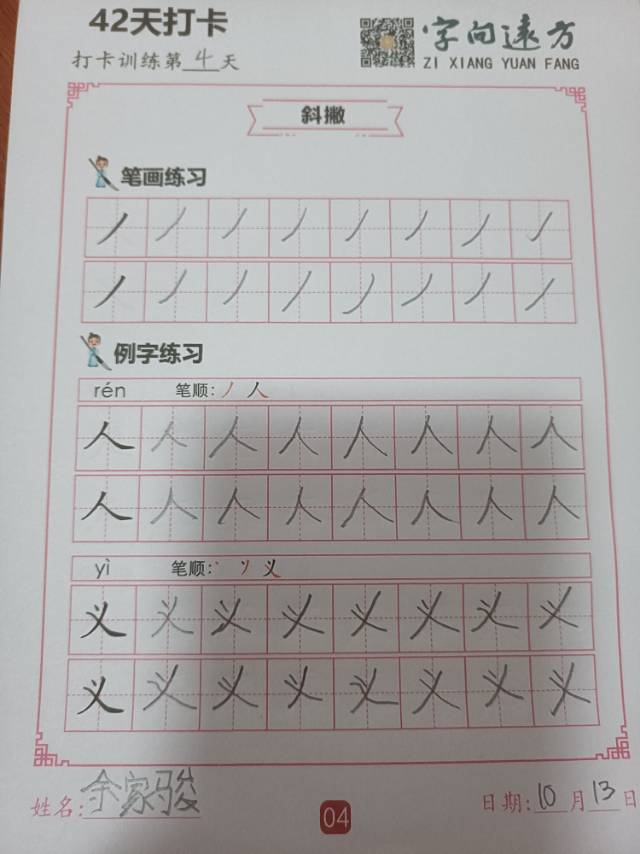 42天打卡
字向远方
打卡训练第4天
ZI XIANG YUAN FANG
斜撇
笔画练习
丿丿丿丿丿丿丿丿
丿丿丿丿丿丿丿丿
例字练习
rén 笔顺:丿人
人人人人人人人人
人人人人人人人人
yì 笔顺:丶丷义
义义义义义义义义
义义义义义义义义
姓名:余家骏
04
日期:10月13日